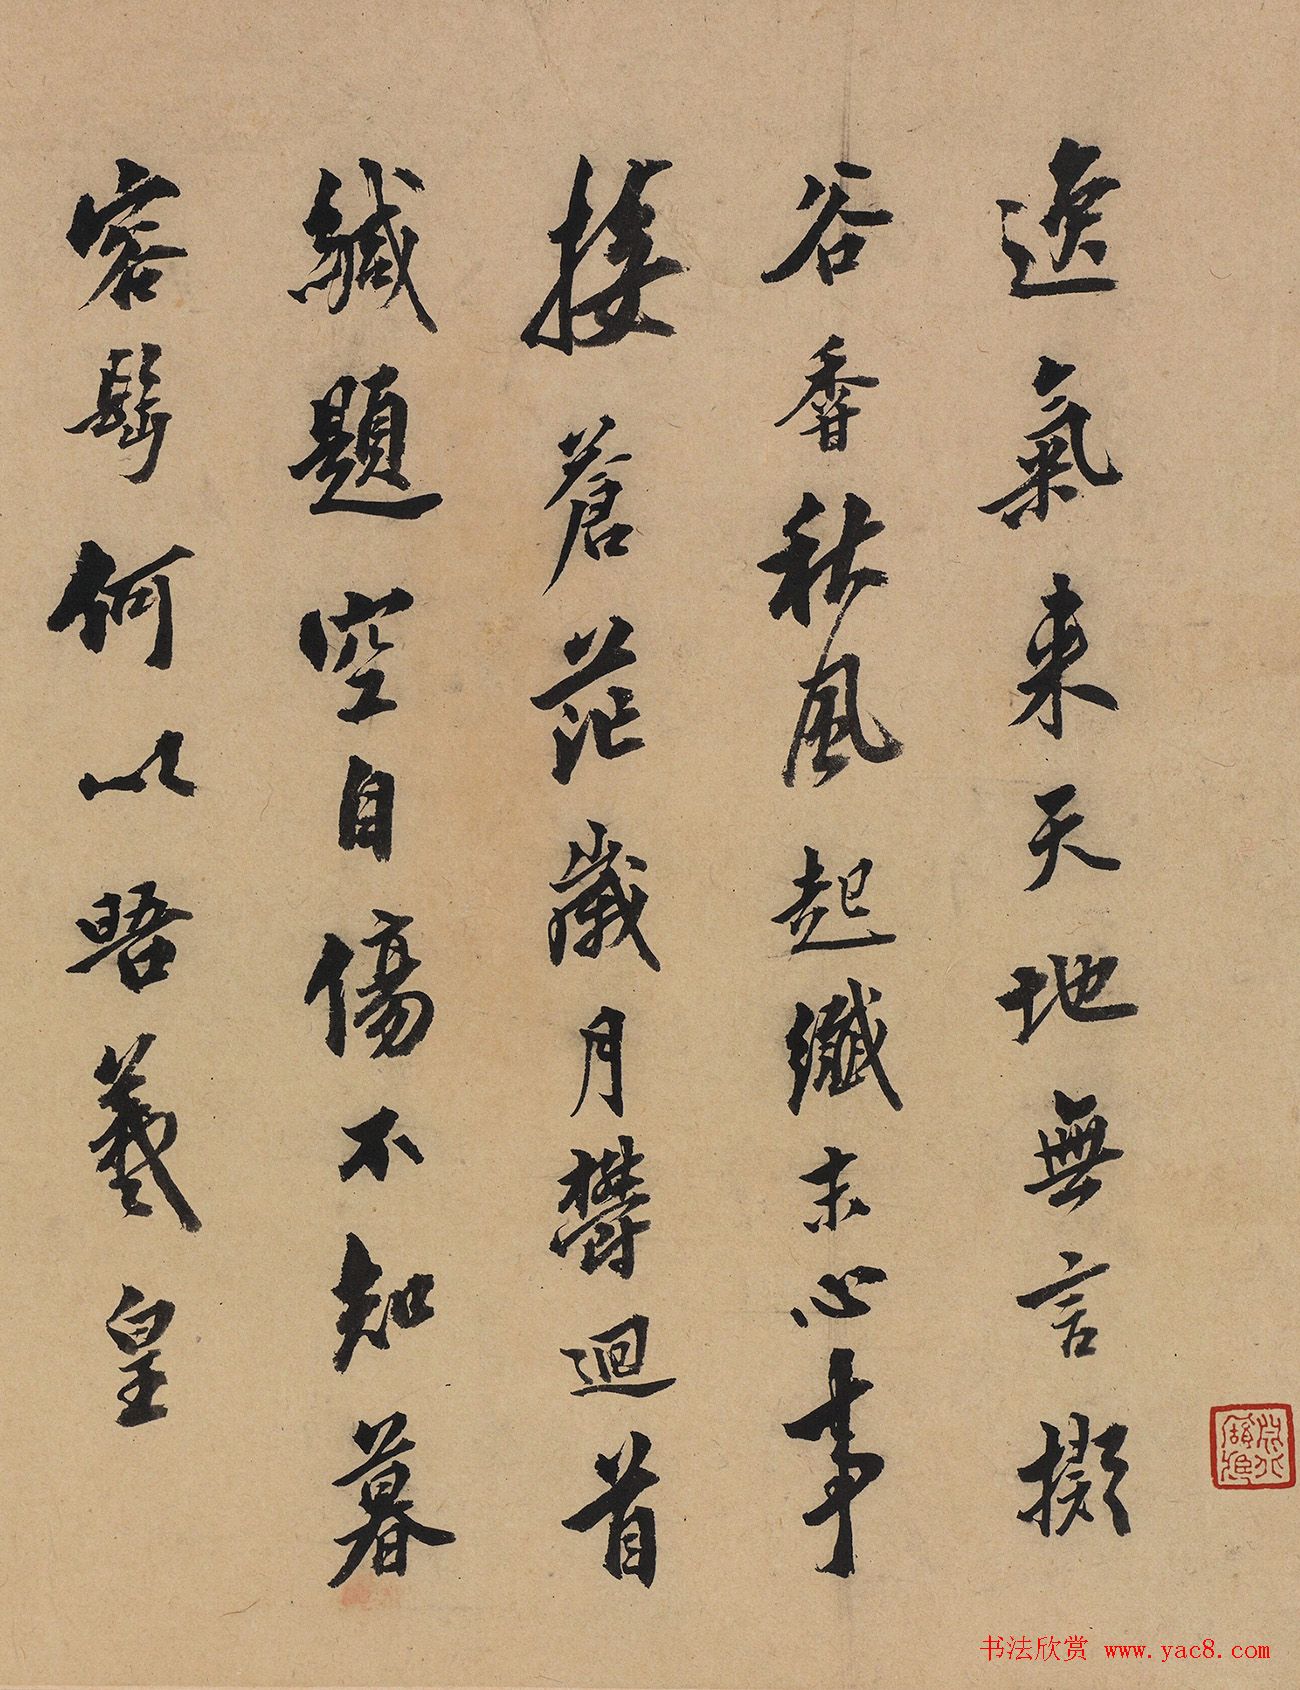 逸氣来天地無言擬
谷香秋風起纖末心事
接蒼茫歲月欎迴首
緘題空自傷不知暮
容髩何以晤羲皇
书法欣赏 www.yac8.com